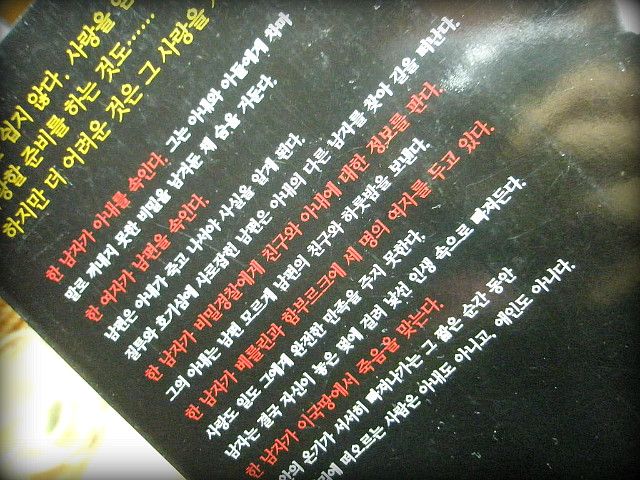 쉽지 않다. 사랑을
준비를 하는 것도……
하지만 더 어려운 것은 그 사랑을
한 남자가 아내를 속인다. 그는 아내와 아들에게 차마
말로 꺼내지 못한 비밀을 남겨둔 채 숨을 거둔다.
한 여자가 남편을 속인다.
남편은 아내가 죽고 나서야 사실을 알게 된다.
질투와 호기심에 사로잡힌 남편은 아내의 다른 남자를 찾아 길을 떠난다.
한 남자가 비밀경찰에게 친구와 아내에 대한 정보를 판다.
그의 아내는 남편 모르게 남편의 친구와 하룻밤을 보낸다.
한 남자가 베를린과 함부르크에 세 명의 여자를 두고 있다.
사랑도 일도 그에게 완전한 만족을 주지 못한다.
남자는 결국 자신이 놓은 덫에 걸려 낯선 인생 속으로 빠져든다.
한 남자가 이국땅에서 죽음을 맞는다.
온기가 서서히 빠져나가는 그 짧은 순간 동안
떠오르는 사람은 아내도 아니고, 애인도 아니다.